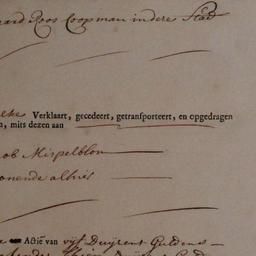 aard Roos Coopman in dese Stad
elke Verklaart, gecedeert, getransporteert, en opgedragen
n, mits dezen aan
ob Mispelblom
onende alhier
Actie van vijf Duijzent Guldens